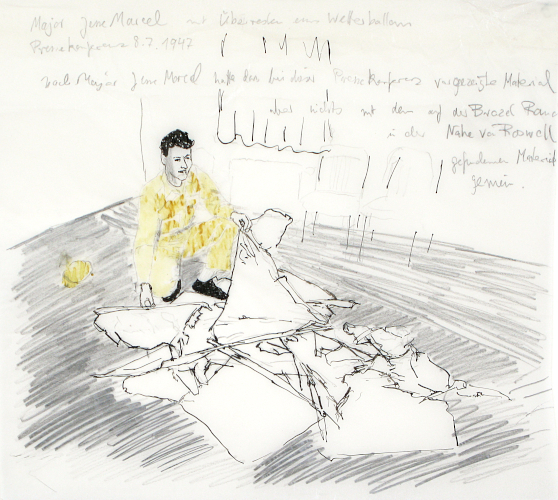 Major Jene Marcel mit Überresten eines Wetterballons
Pressekonferenz 8.7.1947
nach Major Jene Marcel hatte das bei dieser Pressekonferenz vorgezeigte Material
aber nichts mit dem auf der Brazel Ranch
in der Nähe von Roswell
gefundenen Material
gemein.